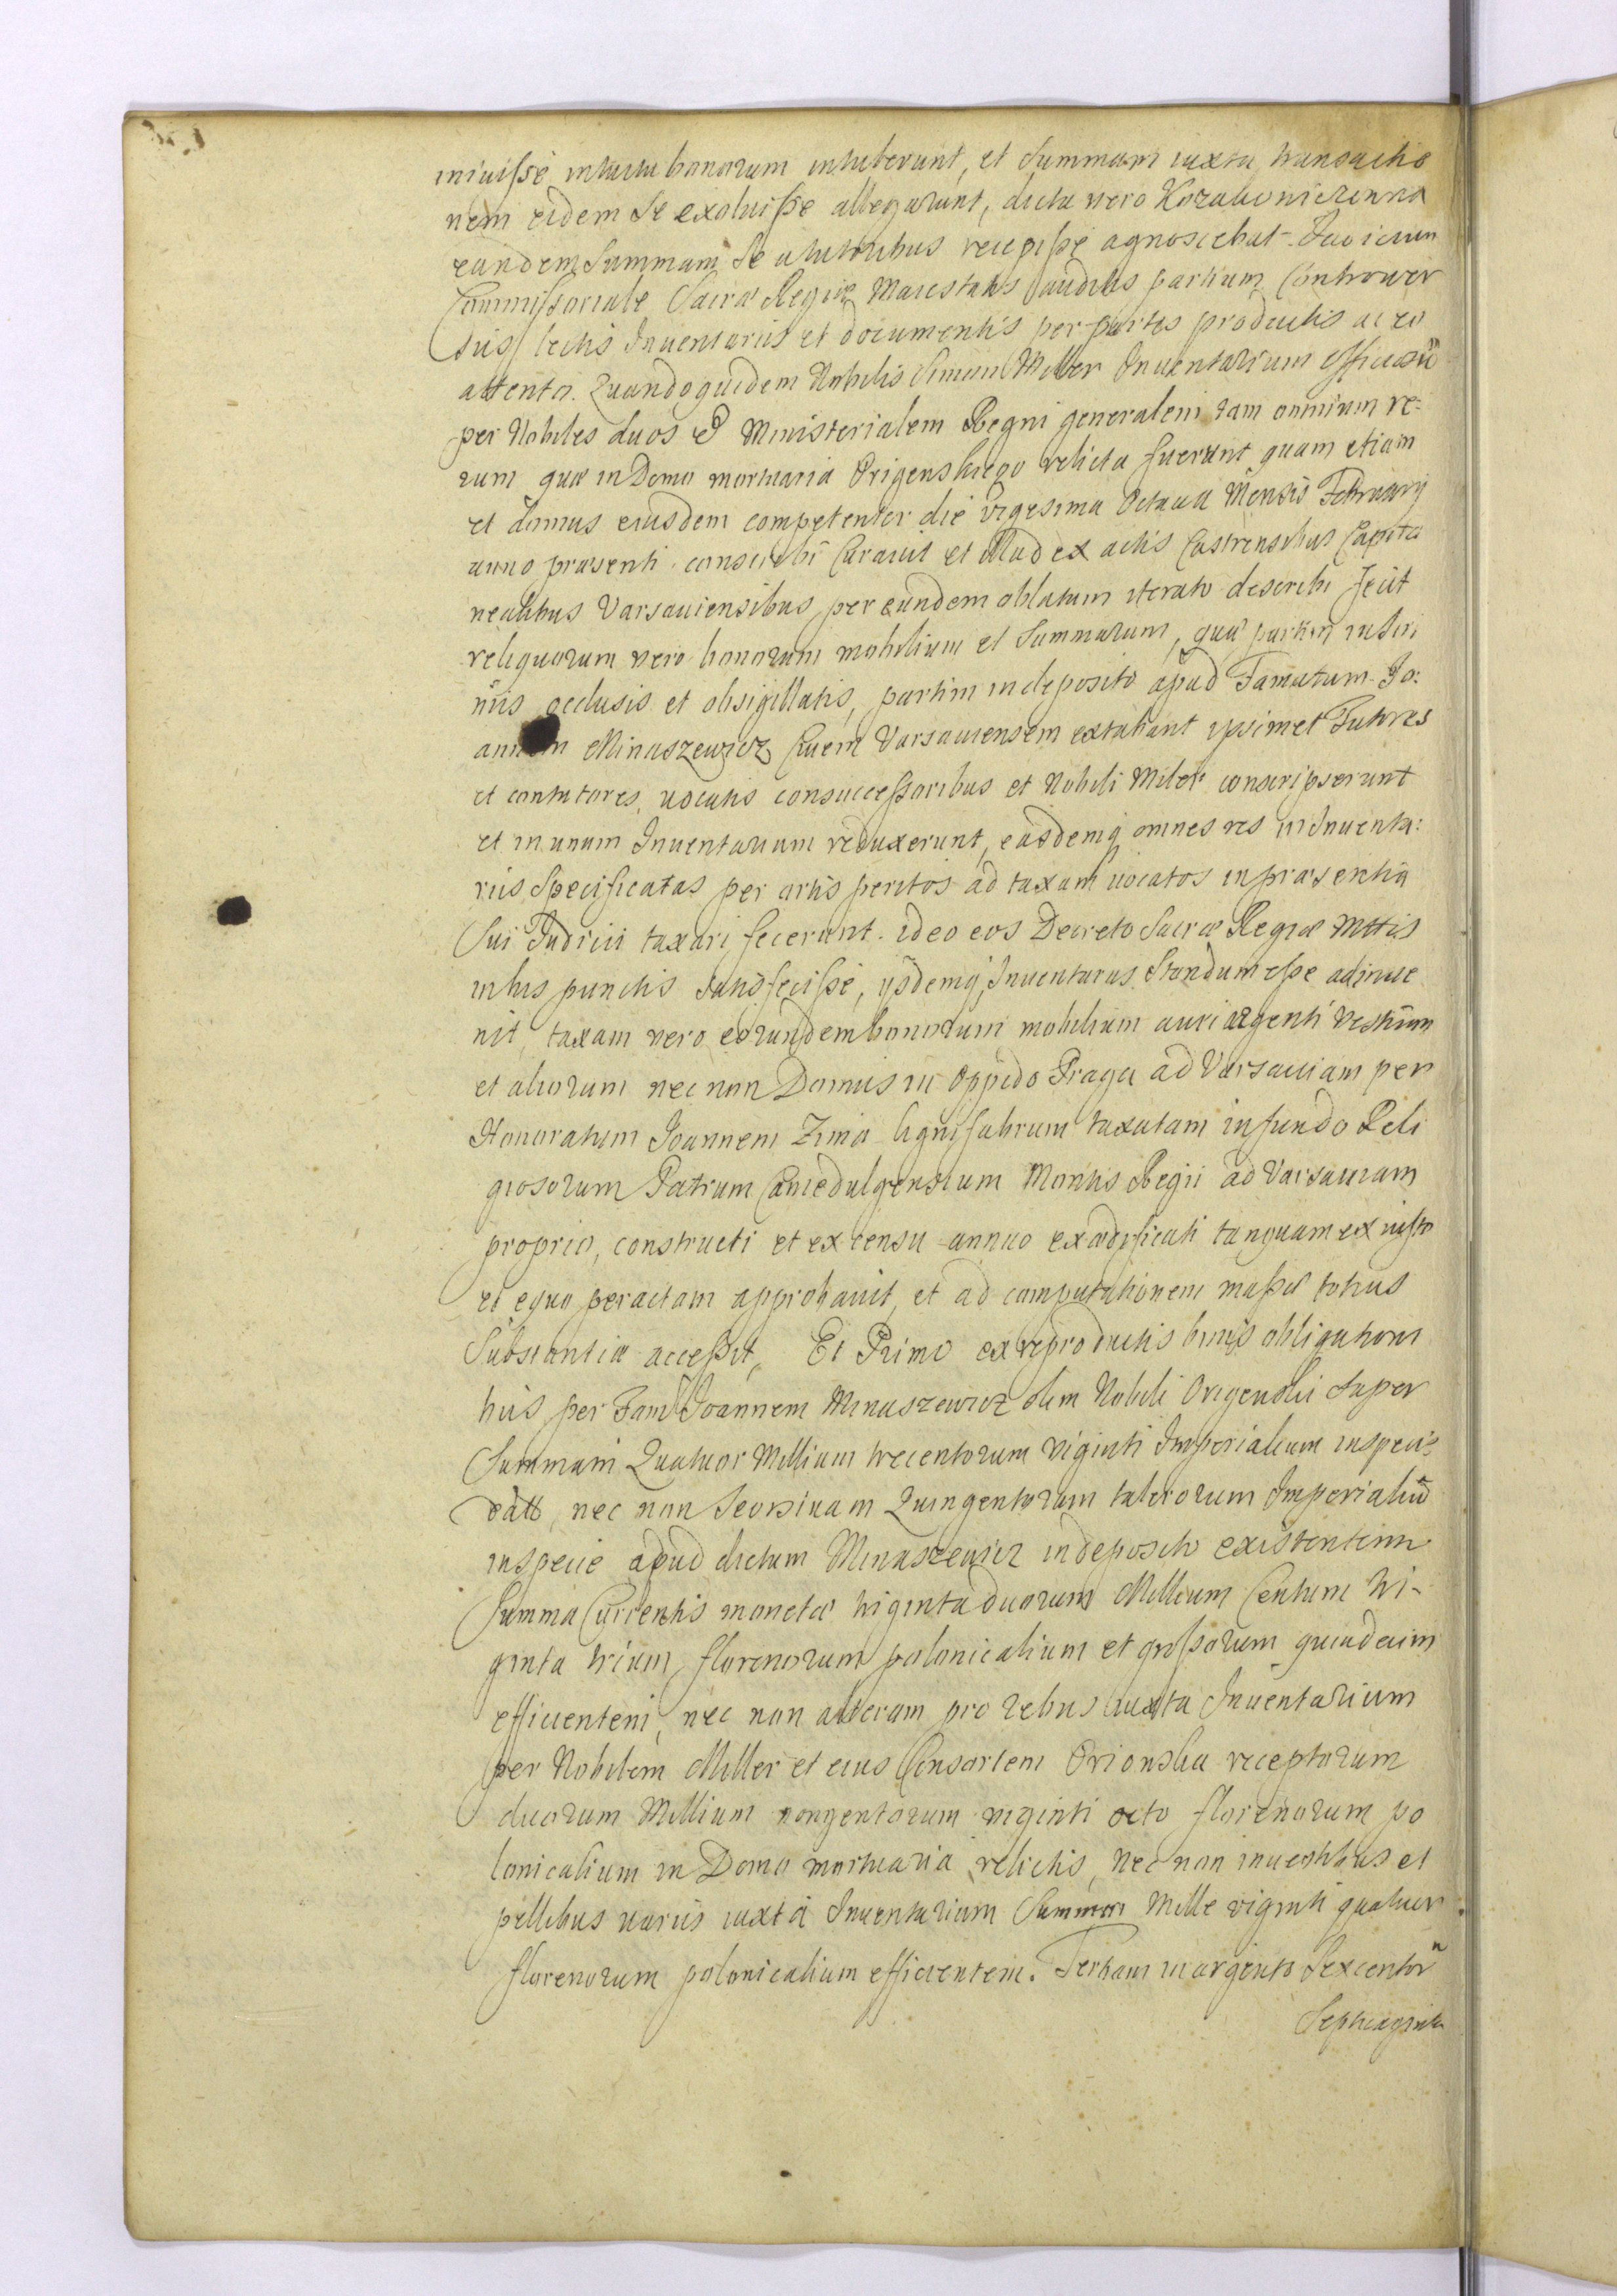 iniuisse intuitu bonorum intulerunt, et Summam iuxta transactio
nem eidem se exoluisse allegarunt, dicta vero Kozakowiczenna
eandem Summam se a tutoribus recepisse agnoscebat. Iudicium
Commissoriale Sacræ Regiæ Maiestatis auditis partium Controuer
siis lectis Inuentariis et documentis per partes productis ac eo
attento. Quandoquidem Nobilis Simon Miller Inuentarium officiosū
per Nobiles duos et Ministerialem Regni generalem tam omnium re:
rum quæ in Domo mortuaria Origenskiego relicta fuerunt quam etiam
et domus eiusdem competenter die Vigesima Octaua Mensis February
anno præsenti conscribi Curauit et illud ex actis Castrensibus Capita
nealibus Varsauiensibus per eundem oblatum iterato describi fecit
reliquorum vero bonorum mobilium et Summarum, quæ partim in Scri
niis occlusis et obsigillatis, partim in deposito apud Famatum Jo:
annem Minaszewicz Ciuem Varsauiensem extabant ipsimet Tutores
et contutores, vocatis consuccessoribus et Nobili Miler conscripserunt
et in unum Inuentarium reduxerunt, easdemq omnes res in Inuenta:
riis Specificatas per artis peritos ad taxam vocatos in præsentia
Sui Iudicii taxari fecerunt. ideo eos Decreto Sacræ Regiæ Mttis
in his punctis satisfecisse, ysdemq Inuentariis Standum esse adinue
nit, taxam vero eorundem bonorum mobilium auri argenti vestium
et aliorum nec non Domus in Oppido Praga ad Varsauiam per
Honoratum Joannem Zima lignifabrum taxatam in fundo Reli
giosorum Patrum Camedulgensium Montis Regii ad Varsauiam
proprio, constructi et ex censu annuo exædificati tanquam ex iusto
et equo peractam approbauit, et ad computationem massæ totius
Substantiæ accessit, Et Primo ex reproductis binis obligationi
bus per Fam Joannem Minaszewicz olim Nobili Origenskii super
Summam Quatuor Millium trecentorum viginti Imperialium in specie
datt, nec non Seorsiuam Quingentorum talerorum Imperialiū
in specie apud dictum Minaszewicz in deposito existentem
Summa Currentis monetæ triginta duorum Millium Centum tri-
ginta trium florenorum polonicalium et grossorum quindecim
efficientem, nec non alteram pro rebus iuxta Inuentarium
per Nobilem Miller et eius Consortem Orionska receptarum
duorum Millium nongentorum viginti octo florenorum po
lonicalium in Domo mortuaria relictis, nec non in vestibus et
pellibus variis iuxta Inuentarium Summam Mille viginti quatuor
florenorum polonicalium efficientem. Tertiam in argento Sexcentor
Septuaginta